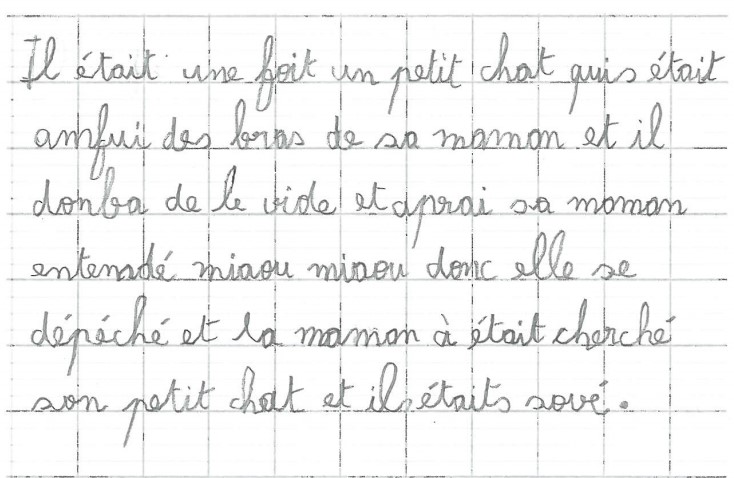 Il était une foit un petit chat quis était
amfui des bras de sa maman et il
donba de le vide et aprai sa maman
entenadé miaou miaou donc elle se
dépéché et la maman à était cherché
son petit chat et il étaits sové.